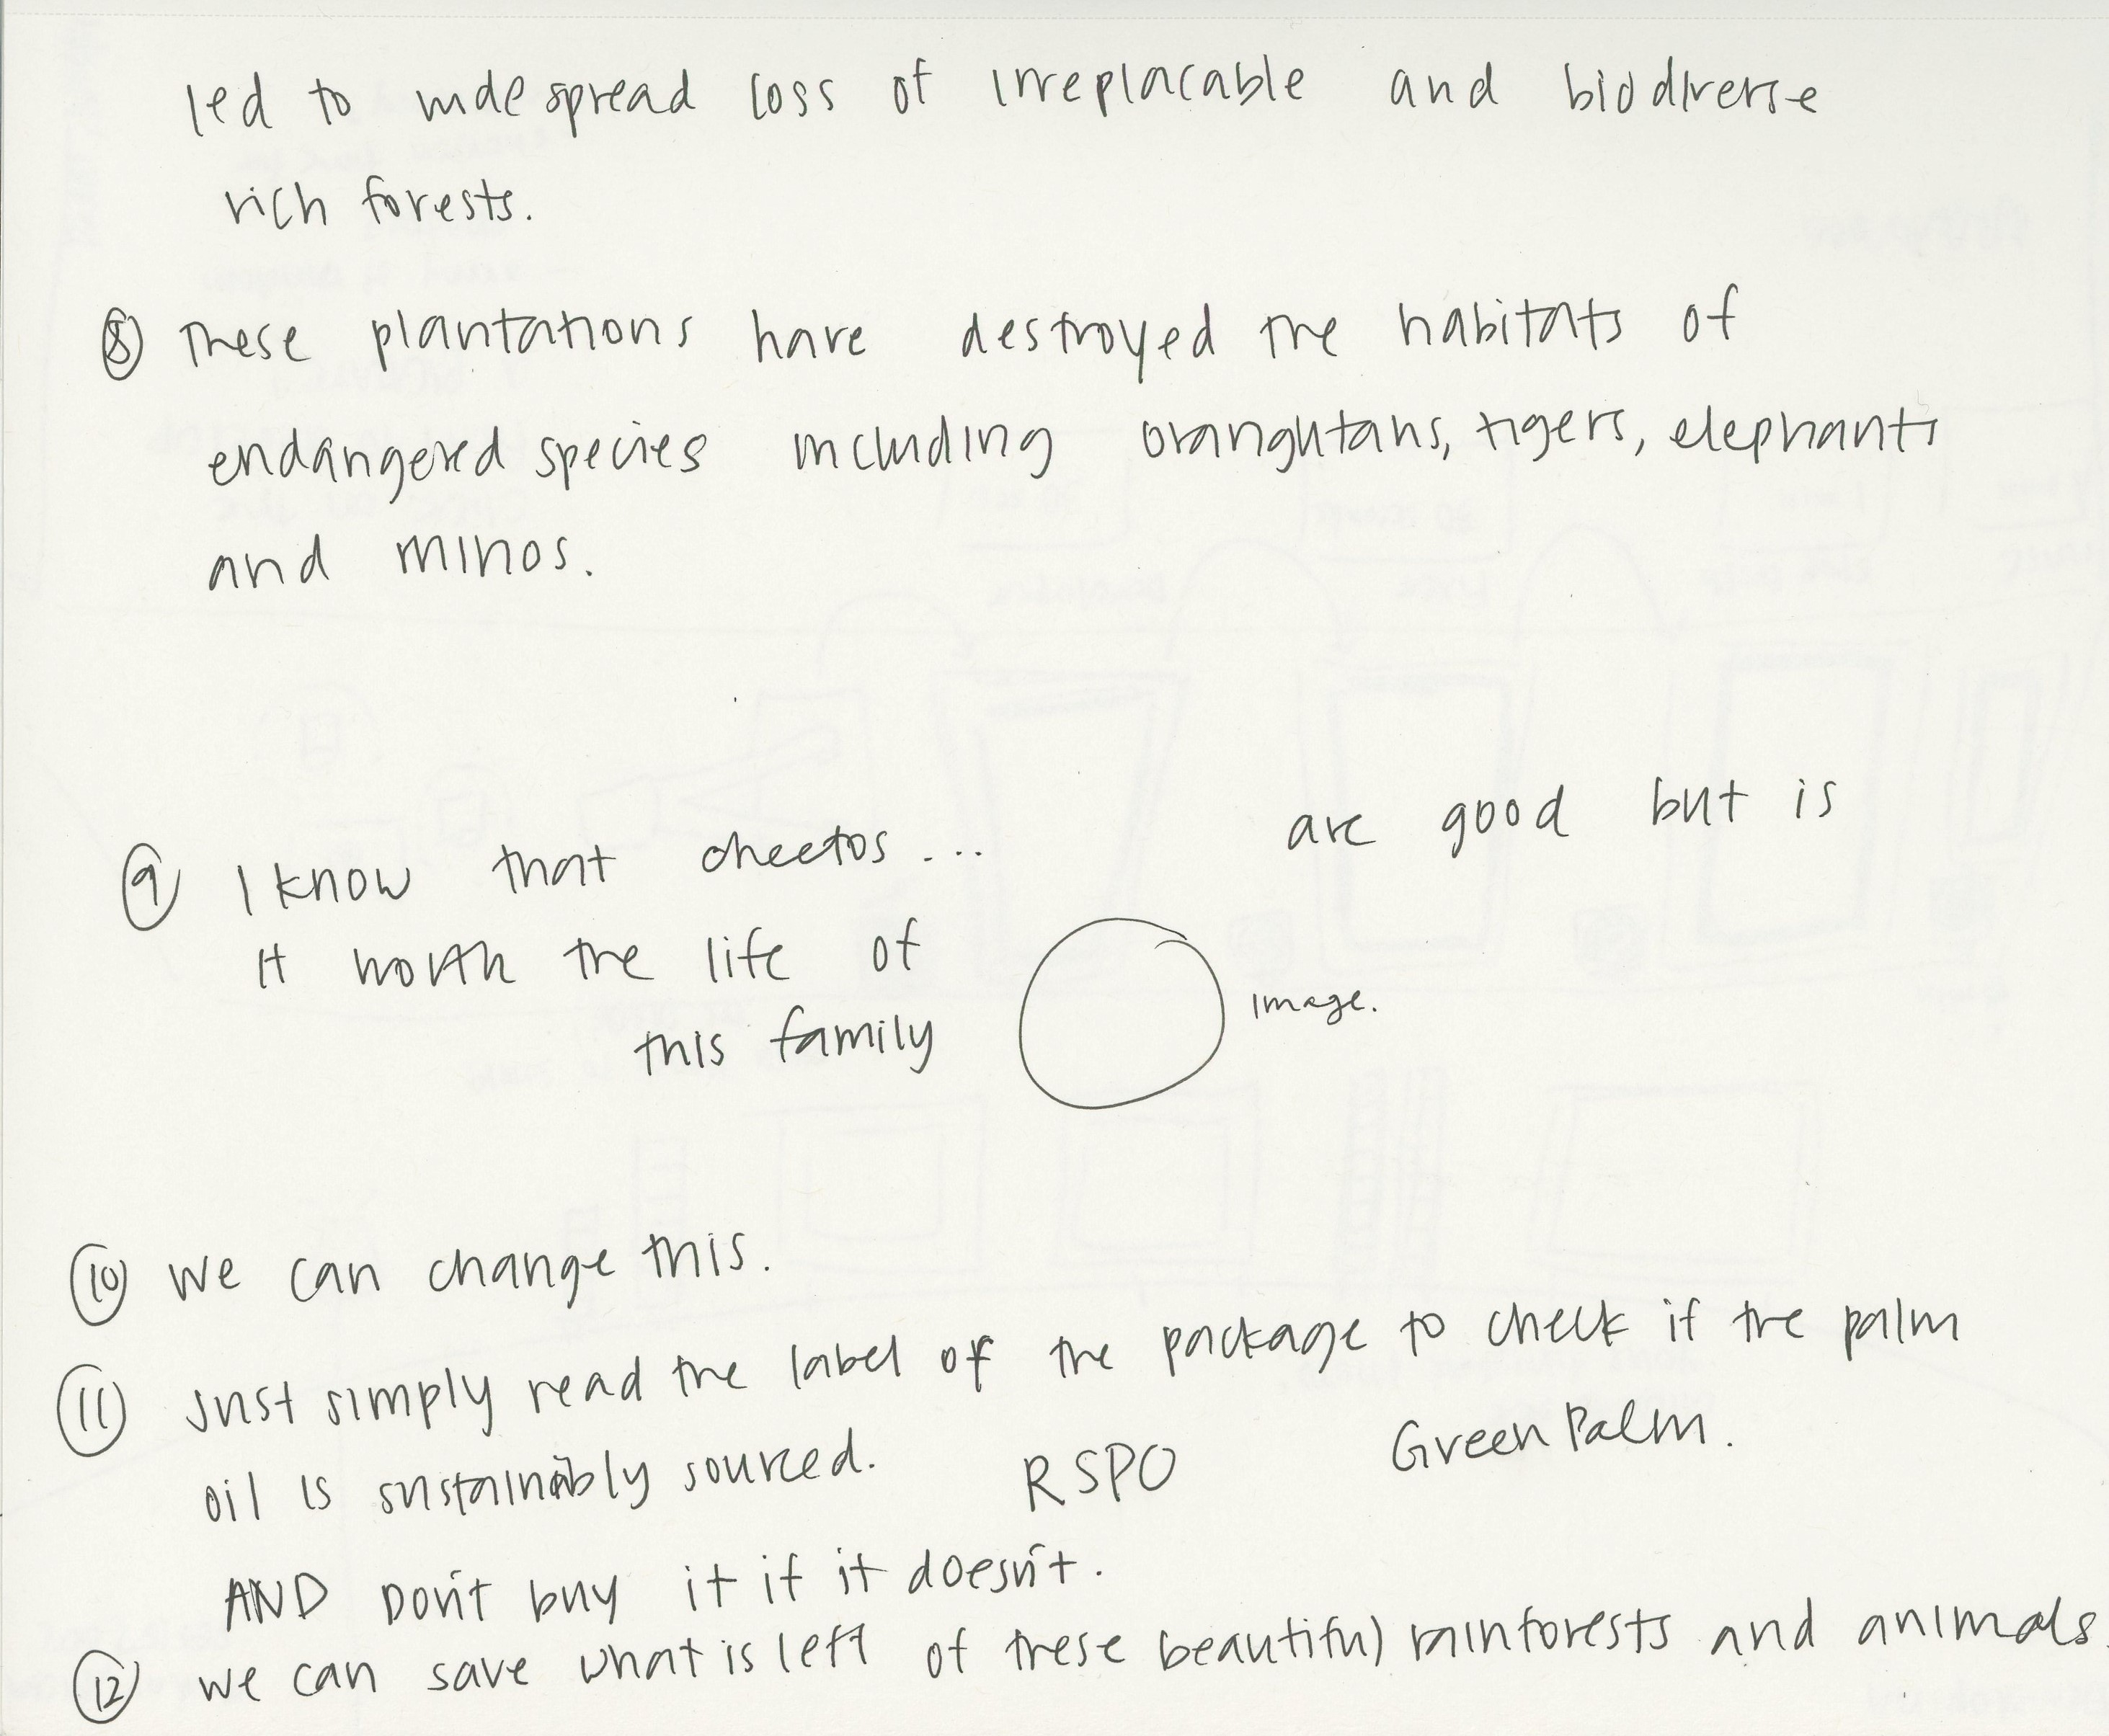 led to widespread loss of irreplacable and biodiverse
rich forests.
⑧ These plantations have destroyed the habitats of
endangered species including oranghutans, tigers, elephants
and rhinos.
⑨ I know that cheetos ... are good but is
it worth the life of
this family
image.
⑩ We can change this.
⑪ Just simply read the label of the package to check if the palm
oil is sustainably sourced. RSPO GreenPalm.
AND Don't buy it if it doesn't.
⑫ we can save what is left of these beautiful rainforests and animals.